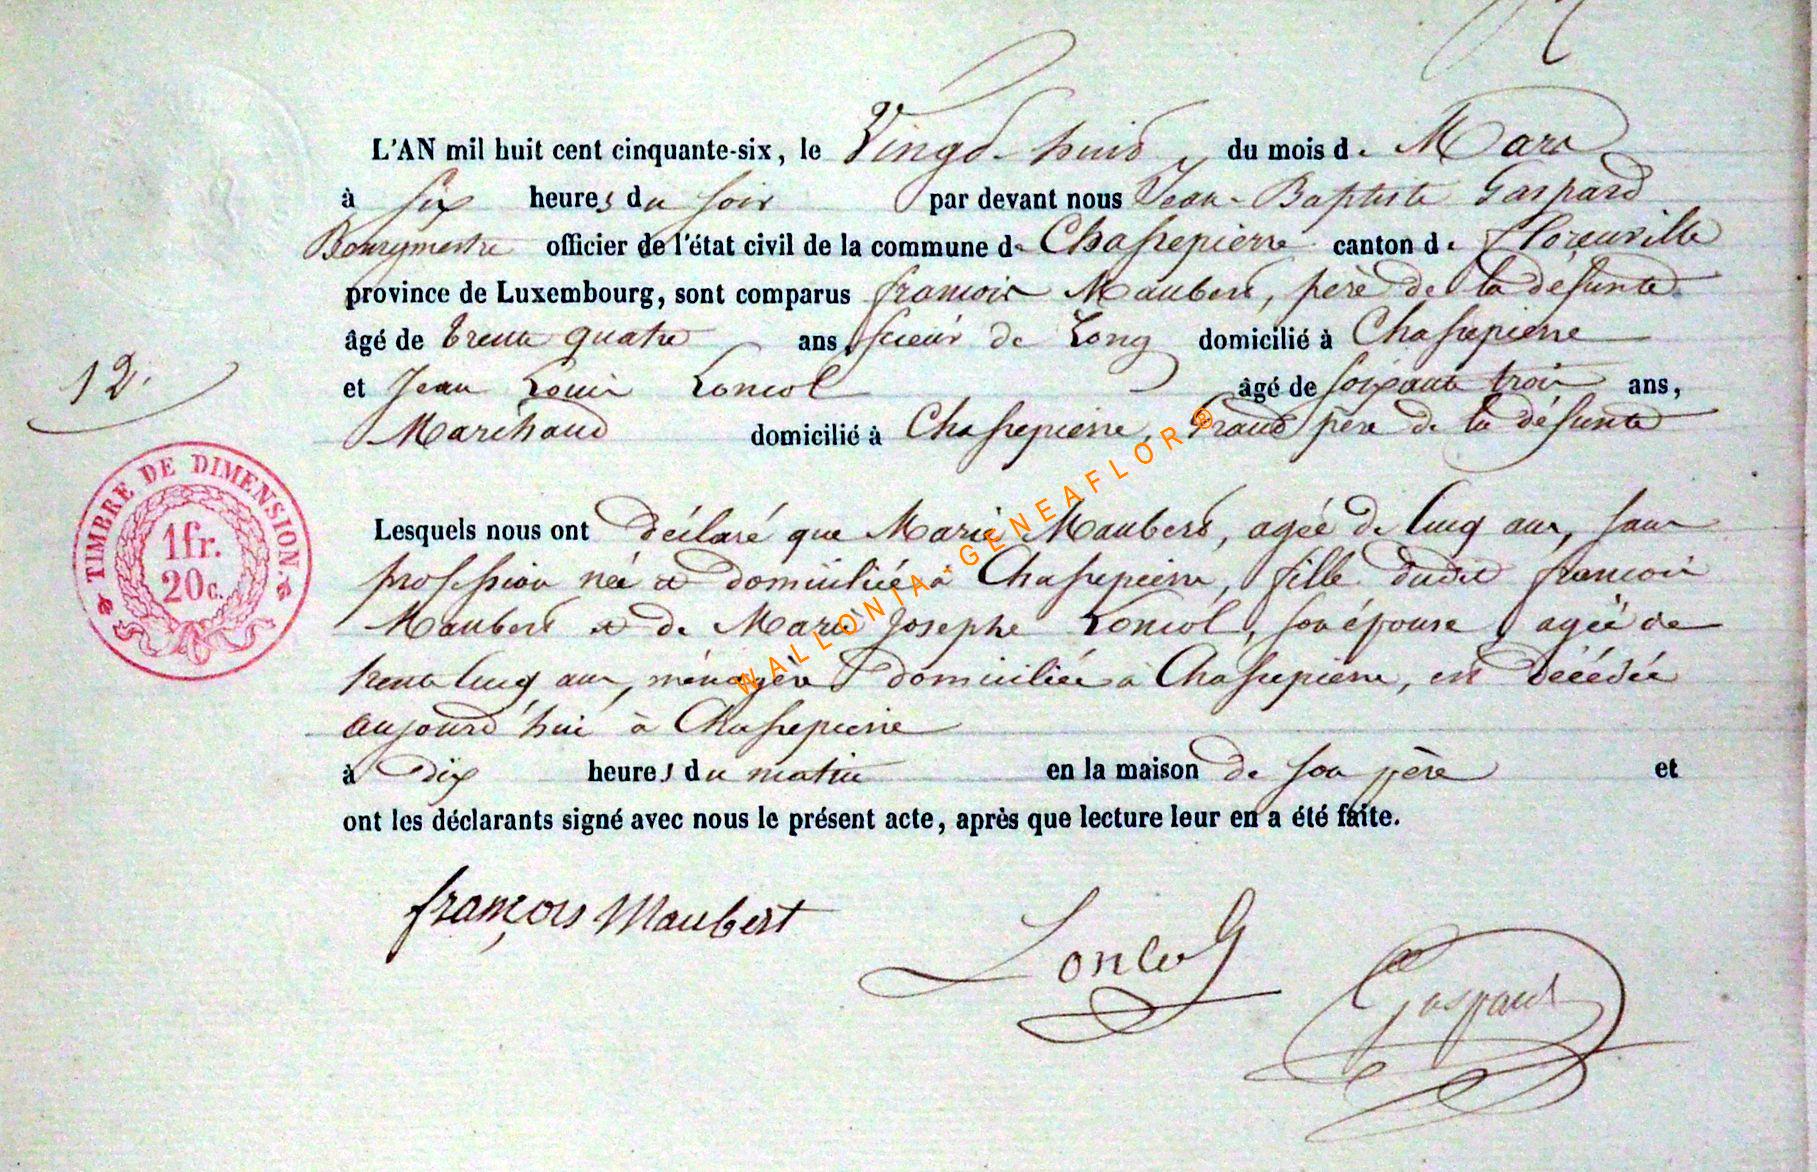 L'AN mil huit cent cinquante-six, le Vingt-huit du mois d. Mars
à six heures du soir par devant nous Jean-Baptiste Gaspard
Bourgmestre officier de l'état civil de la commune de Chassepierre canton de Florenville
province de Luxembourg, sont comparus françois Maubert, père de la défunte
âgé de trente quatre ans, scieur de Long domicilié à Chassepierre
et Jean Louis Loncol âgé de soixante trois ans,
12.
Marchand domicilié à Chassepierre, Grand père de la défunte
TIMBRE DE DIMENSION.
1fr.
20c.
Lesquels nous ont déclaré que Marie Maubert, agée de Cinq ans, sans
profession née et domiciliée à Chassepierre, fille dudit françois
Maubert et de Marie Josephe Loncol, son épouse, agée de
trente Cinq ans, ménagère domiciliée à Chassepierre, est décédée
aujourd'hui à Chassepierre
à dix heures du matin en la maison de son père et
ont les déclarants signé avec nous le présent acte, après que lecture leur en a été faite.
françois Maubert
Loncol
Gaspard
WALLONIA-GENEAFLOR®